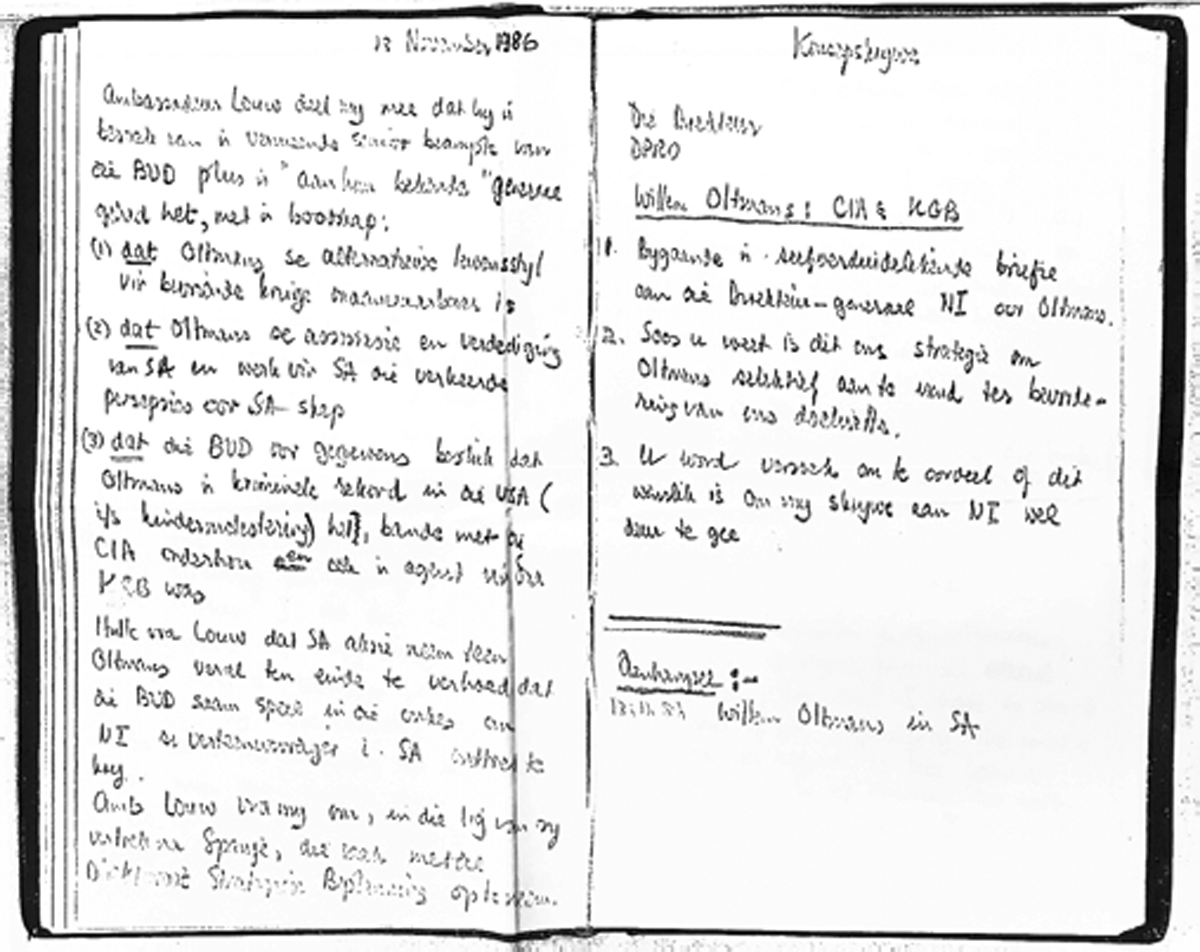 November 1986
Ambassadeur Louw deel my mee dat hy 'n
besoek van 'n senior beampte van
die BUD plus 'n "aan hom bekende" generaal
gehad het, met 'n boodskap:
(1) dat Oltmans se alternatiewe lewenstyl
vir kringe is
(2) dat Oltmans se assosiasie en verdediging
van SA en werk vir SA die verkeerde
persepsies oor SA skep
(3) dat die BUD oor gegewens beskik dat
Oltmans 'n kriminele rekord in die USA (
i/s kindermolestering) het, bande met die
CIA onderhou en ook 'n agent vir die
KGB was
Hulle vra Louw dat SA aksie neem teen
Oltmans ten einde te verhoed dat
die BUD
NI se SA
hug.
Amb Louw vra my om, in die lig van sy
vertrek na Spanje, die saak met die
Strategiese Beplanning op te neem.
Konsepskrywe
Die Direkteur
Willem Oltmans: CIA & KGB
1. Bygaande 'n selfverduidelikende briefie
aan die Direkteur-generaal NI oor Oltmans.
2. Soos u weet is dit ons strategie om
Oltmans selektief aan te wend ter bevorde-
ring van ons doelwitte.
3. U word versoek om te oordeel of dit
wenslik is om my skrywe aan NI wel
deur te gee
Aanhangsel :-
Willem Oltmans in SA